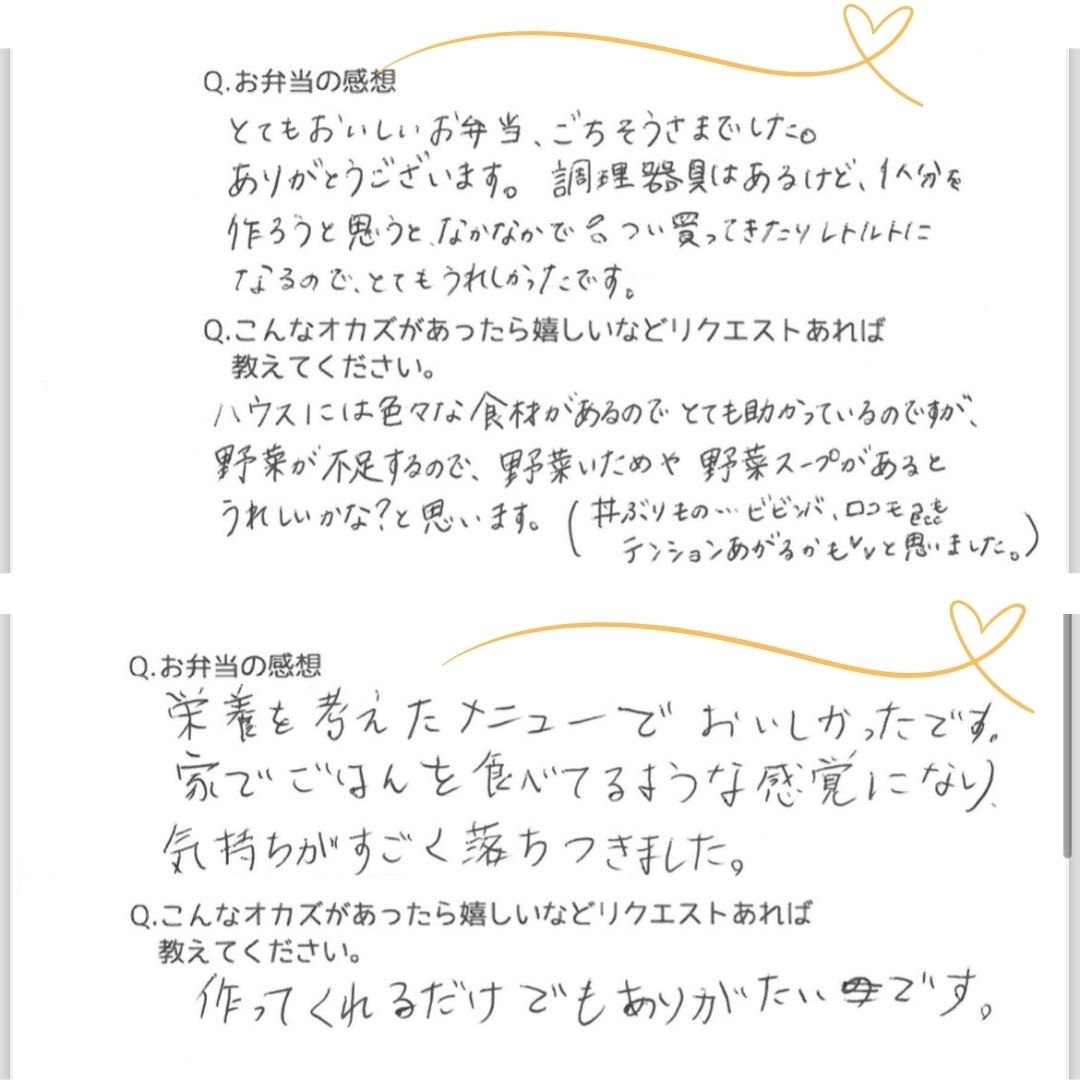 Q.お弁当の感想
とてもおいしいお弁当、ごちそうさまでした。
ありがとうございます。調理器具はあるけど、1人分を
作ろうと思うと、なかなかで つい買ってきたりレトルトに
なるので、とてもうれしかったです。
Q.こんなオカズがあったら嬉しいなどリクエストあれば
教えてください。
ハウスには色々な食材があるのでとても助かっているのですが、
野菜が不足するので、野菜いためや野菜スープがあると
うれしいかな?と思います。(丼ぶりもの…ビビンバ、ロコモ
テンションあがるかもvvと思いました。)
Q.お弁当の感想
栄養を考えたメニューでおいしかったです。
家でごはんを食べてるような感覚になり、
気持ちがすごく落ちつきました。
Q.こんなオカズがあったら嬉しいなどリクエストあれば
教えてください。
作ってくれるだけでもありがたいです。